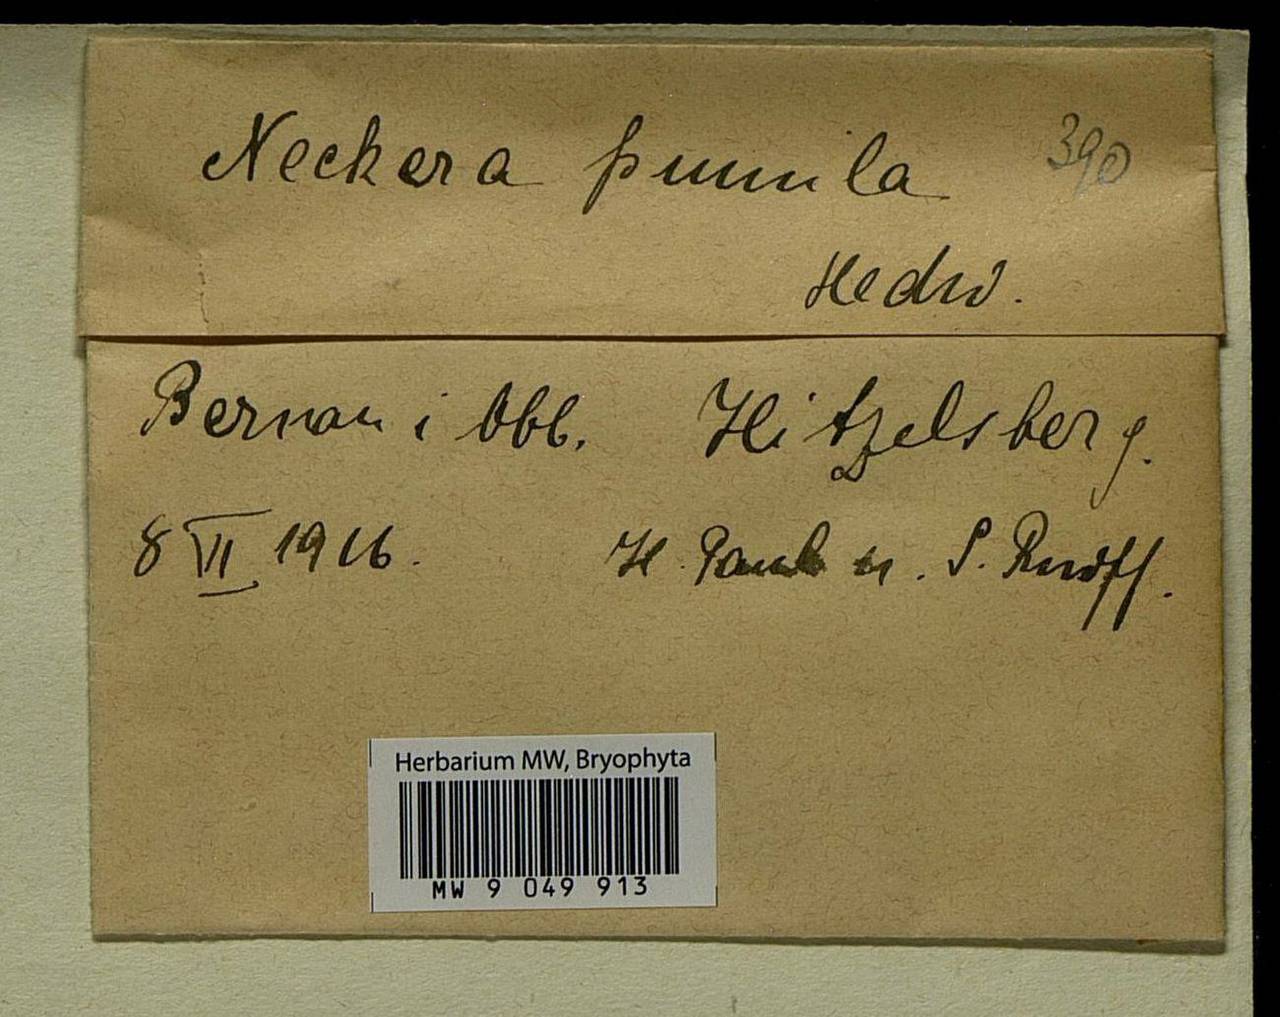 Neckera pumila 390
Hedw.
Bernau i Obb. Hitzelsberg.
8 VI 1916. H. Paul u. S. Ruoff.
Herbarium MW, Bryophyta
MW 9 049 913